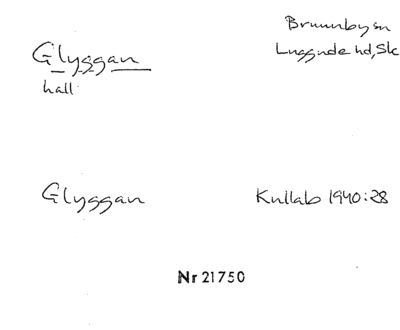 Glyggan
hall
Brunnby sn
Luggude hd, Sk
Glyggan
Kullab 1940:28
Nr 21750